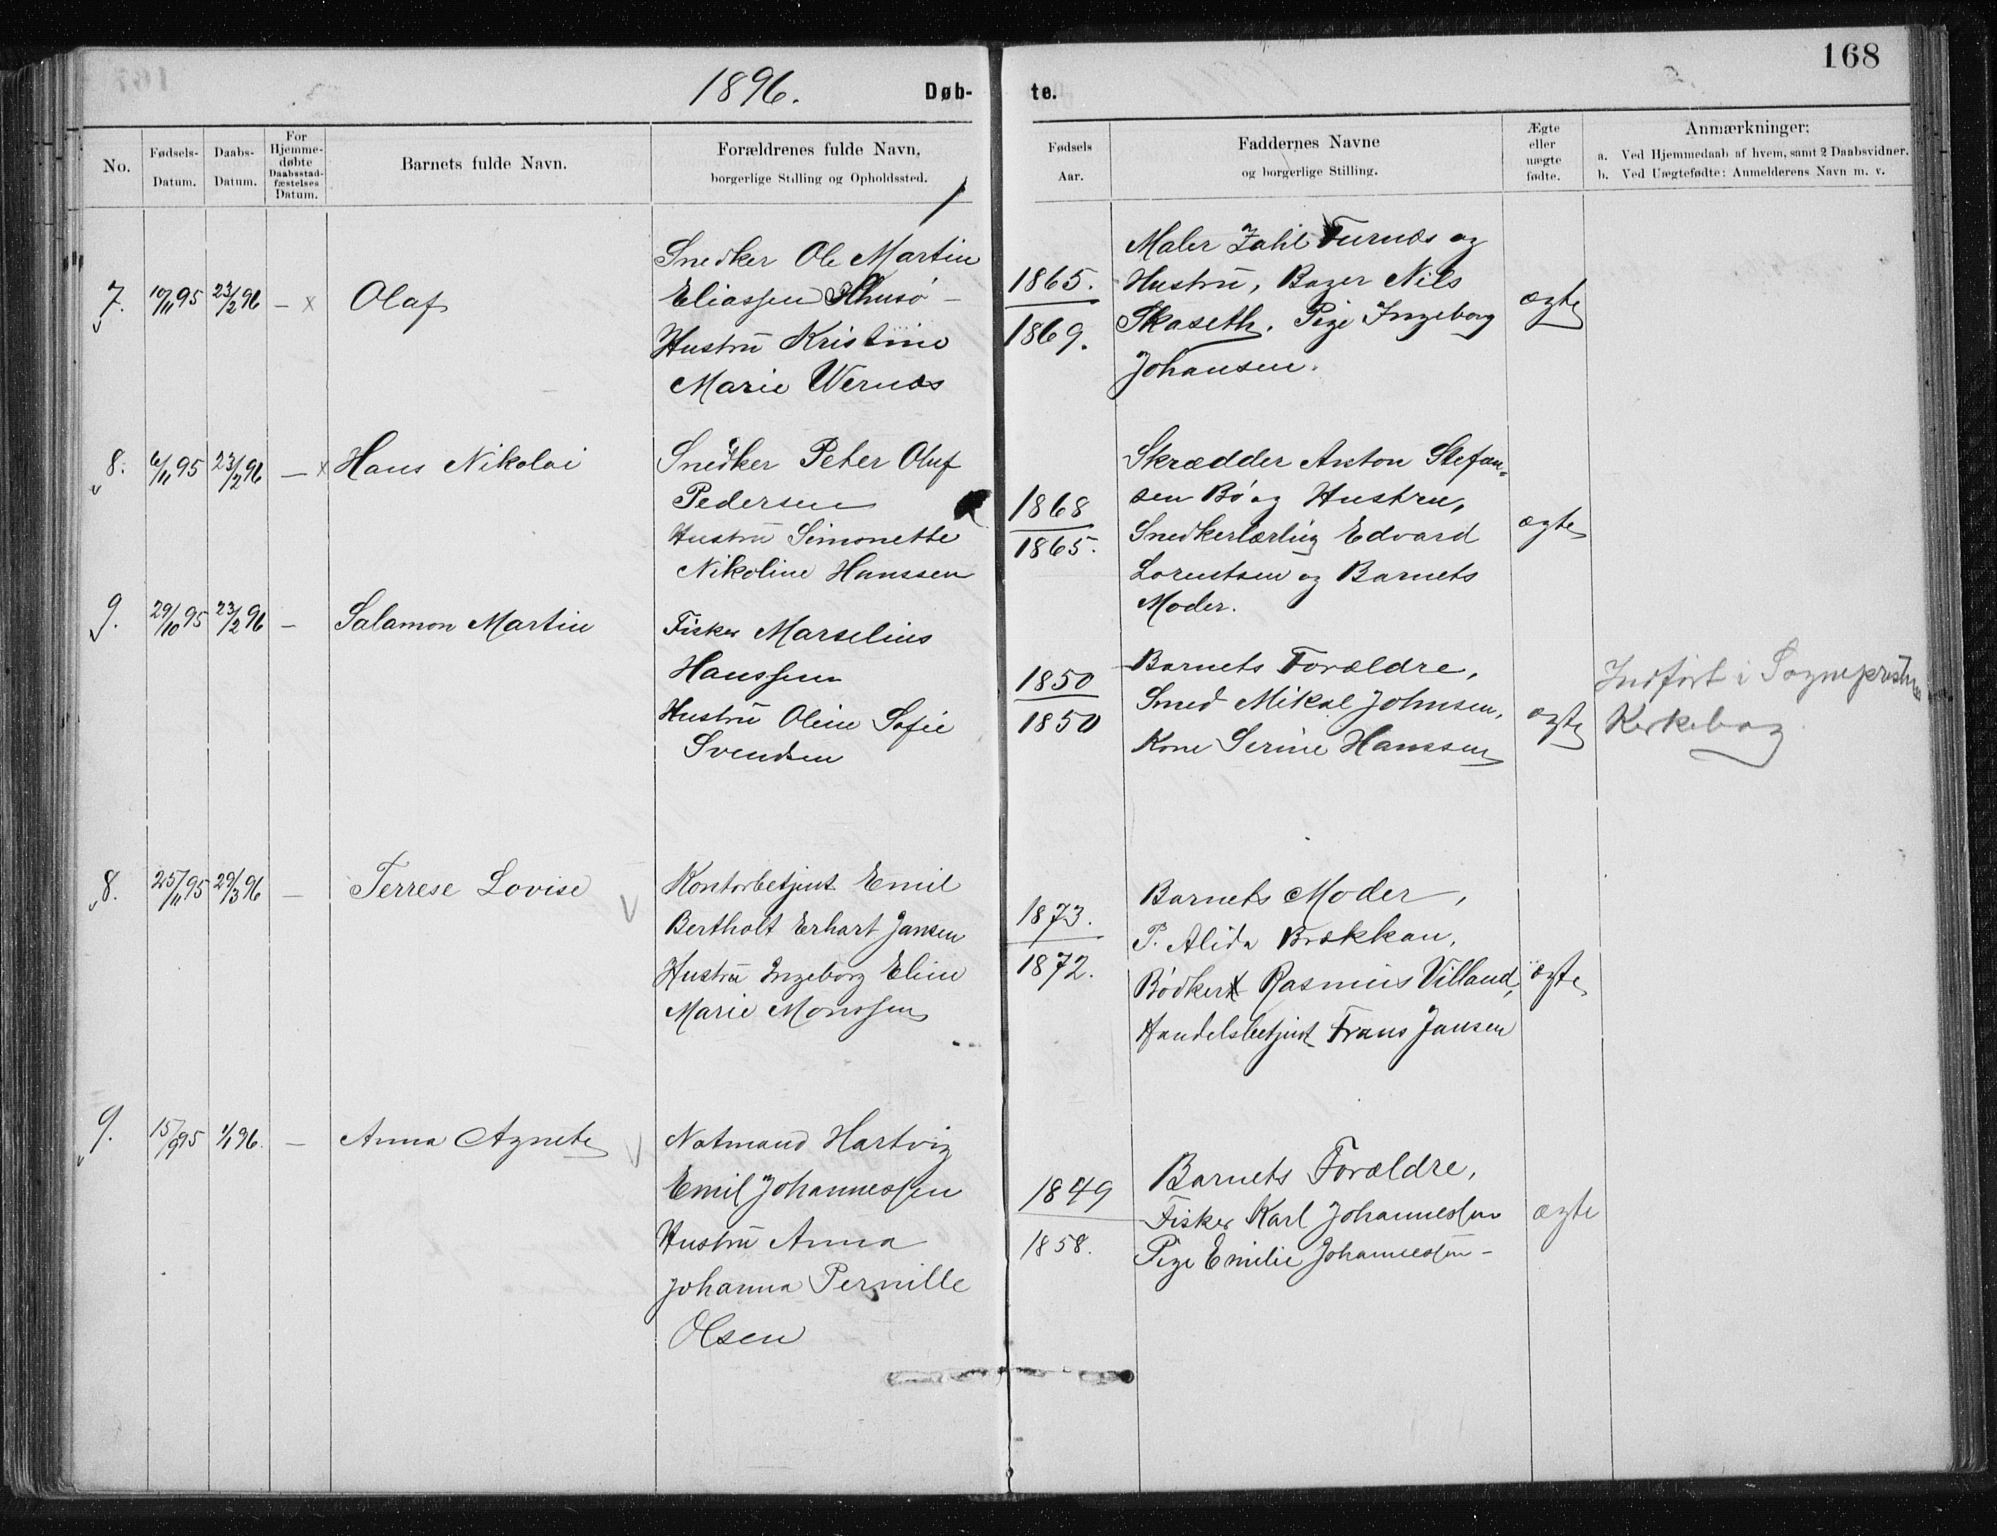 168
1896. Døb- te.
No.
Fødsels-
Datum.
Daabs-
Datum.
For
Hjemme-
døbte
Daabsstad-
fæstelses
Datum.
Barnets fulde Navn.
Forældrenes fulde Navn,
borgerlige Stilling og Opholdssted.
Fødsels
Aar.
Faddernes Navne
og borgerlige Stilling.
Ægte
eller
uægte
fødte.
Anmærkninger:
a. Ved Hjemmedaab af hvem, samt 2 Daabsvidner.
b. Ved Uægtefødte: Anmelderens Navn m. v.
7. 10/11 95 23/2 96 — x Olaf
Snedker Ole Martin
Eliassen
Hustru Kristine
Marie Wernes
1865.
1869.
Maler Zahl Furnes og
Hustru, Bager Nils
Skaseth. Pige Ingeborg
Johansen.
ægte
8. 6/11 95 23/2 96 — x Hans Nikolai
Snedker Peter Oluf
Pedersen
Hustru Simonette
Nikoline Hanssen
1868
1865.
Skrædder Anton Stefan-
sen Bø og Hustru,
Snedkerlærling Edvard
Lorentsen og Barnets
Moder.
ægte
9. 29/10 95 23/2 96 — Salamon Martin
Fisker Marselius
Hanssen
Hustru Oline Sofie
Svendsen
1850
1850
Barnets Forældre,
Smed Mikal Johnsen,
Kone Serine Hanssen
ægte
Indført i Sogneprestens
Kirkebog
8. 25/11 95 29/3 96 — Terrese Lovise
Kontorbetjent Emil
Bertholt Erhart Jansen
Hustru Ingeborg Eline
Marie Monssen
1873.
1872.
Barnets Moder,
P. Alida Brækkan,
Bødker Rasmus Villand,
Handelsbetjent Frans Jansen
ægte
9. 15/9 95 1/1 96. — Anna Agnete
Notmand Hartvig
Emil Johannessen
Hustru Anna
Johanna Pernille
Olsen
1849
1858.
Barnets Forældre,
Fisker Karl Johannessen
Pige Emilie Johannessen —
ægte